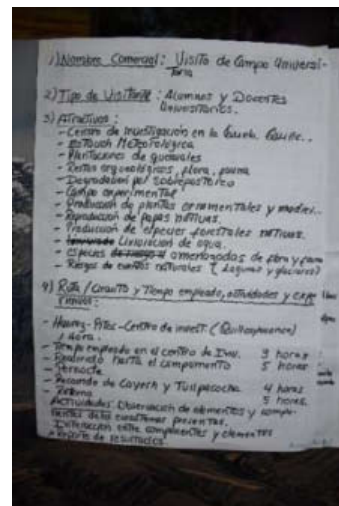 1) Nombre Comercial: Visita de Campo Universi-
taria
2) Tipo de Visitante: Alumnos y Docentes
Universitarios.
3) Atractivos:
- Centro de Investigación en la
- Estación Meteorológica
- Plantaciones de queuales
- Restos arqueológicos, flora, fauna
- Degradación por sobrepastoreo
- Campo experimental
- Producción de plantas ornamentales y
- Reproducción de papas nativas.
- Producción de especies forestales nativas.
- de agua.
- especies amenazadas de flora y fauna
- Riesgos de eventos naturales (Lagunas y glaciares)
4) Ruta/Circuito y Tiempo empleado, actividades y
- Huaraz-Pitec-Centro de invest. (Quillcayhuanca)
1 hora.
- Tiempo empleado en el centro de Inv. 3 horas
- hasta el campamento 5 horas
- Pernocte
- Recorrido de Cayesh y Tullpacocha 4 horas
- Retorno 5 horas.
Actividades: Observación de elementos y compo-
nentes de los ecosistemas presentes.
Interacción entre componentes y elementos
Reporte de resultados.